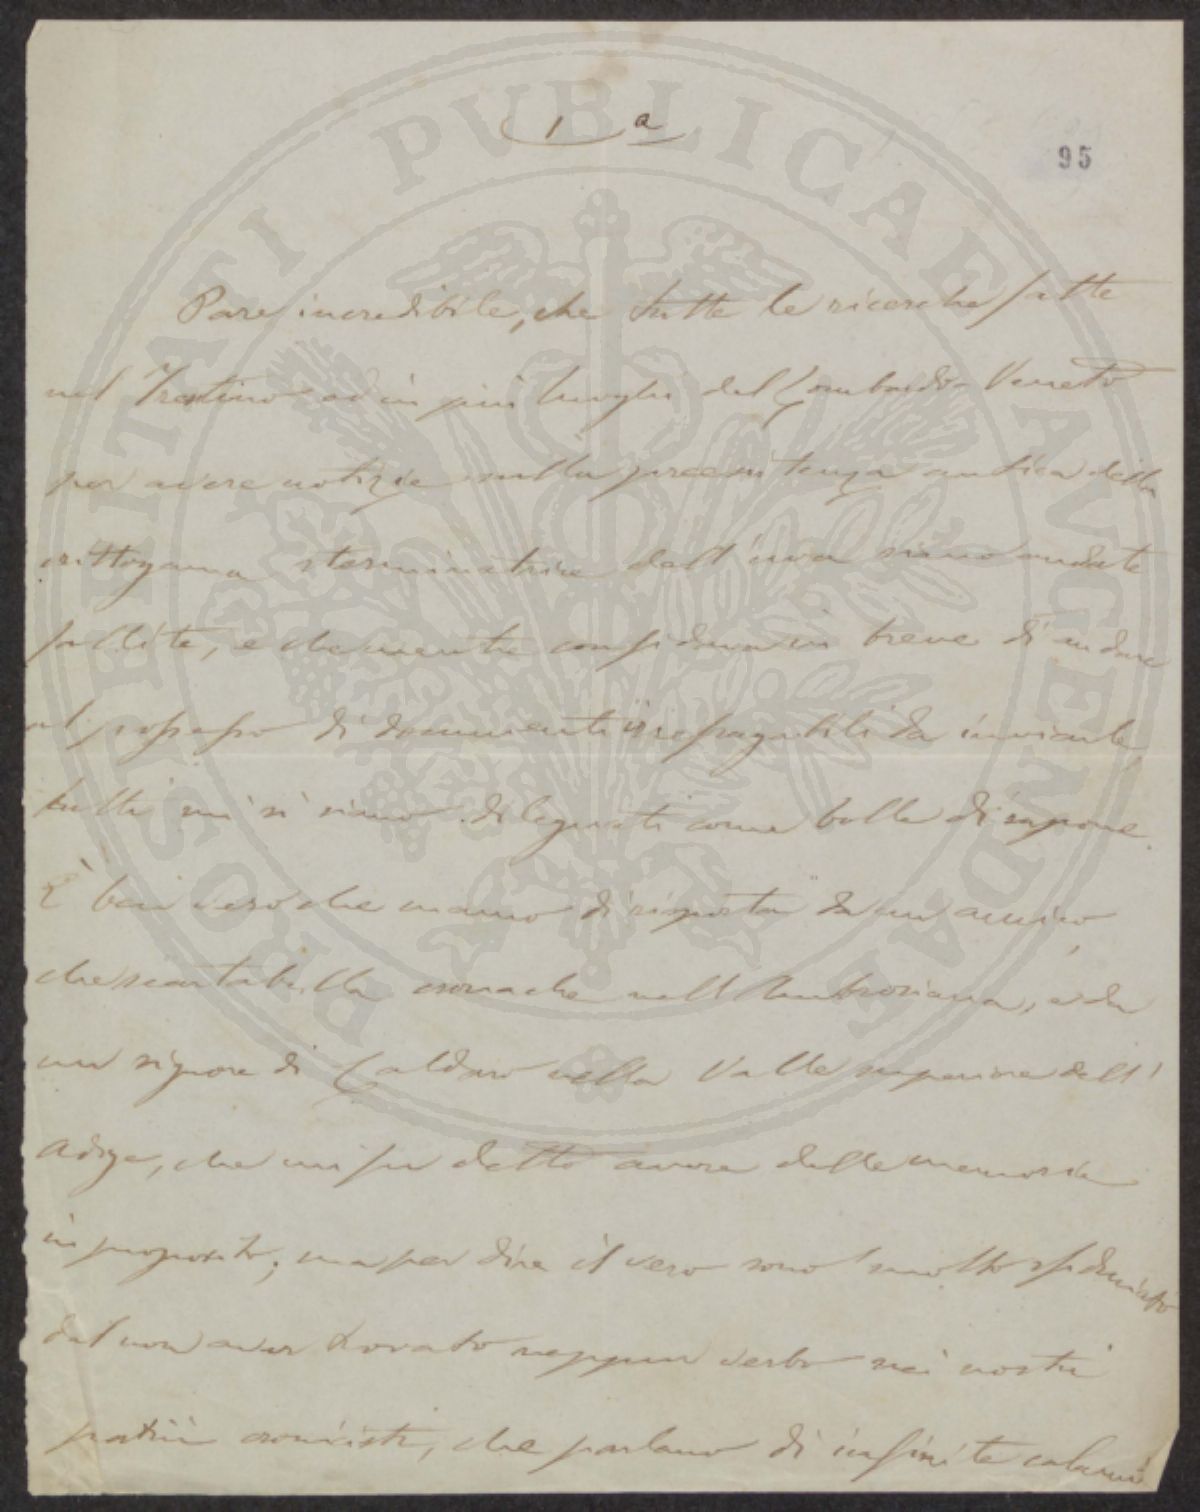 1 a
95
Pare incredibile, che tutte le ricerche fatte
nel Trentino ed in più luoghi del Lombardo-Veneto
per avere notizie sulla preesistenza antica della
crittogama sterminatrice dell'uva siano andate
fallite, e che mentre confidava in breve di andare
al possesso di documenti irrefragabili da inviarle,
tutti mi si siano dileguati come bolle di sapone.
È ben vero che manco di risposta da un amico,
che scartabella cronache nell'Ambrosiana, e da
un signore di Caldaro nella Valle superiore dell'
Adige, che mi fu detto avere delle memorie
in proposito; ma per dire il vero sono molto sfiduciato
dal non aver trovato neppur verbo nei nostri
patrii cronisti, che parlano di infinite calami
PROSPERITATI PUBLICAE AUGENDAE